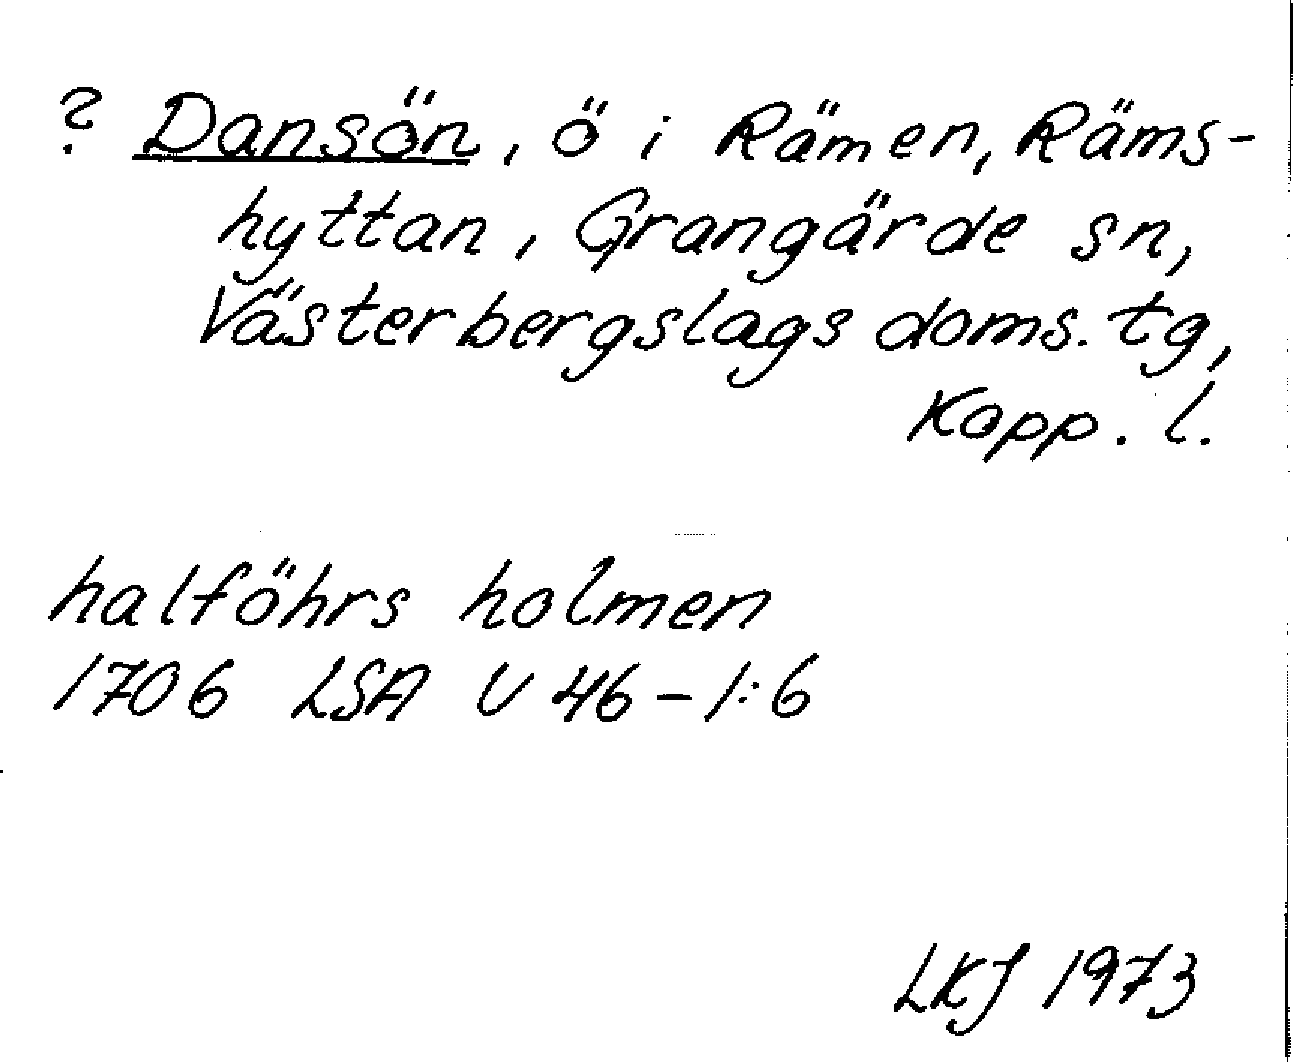 ? Dansön, ö i Rämen, Räms-
hyttan, Grangärde sn,
Västerbergslags doms. tg,
Kopp. l.
halföhrs holmen
1706 LSA U 46-1:6
LKJ 1973